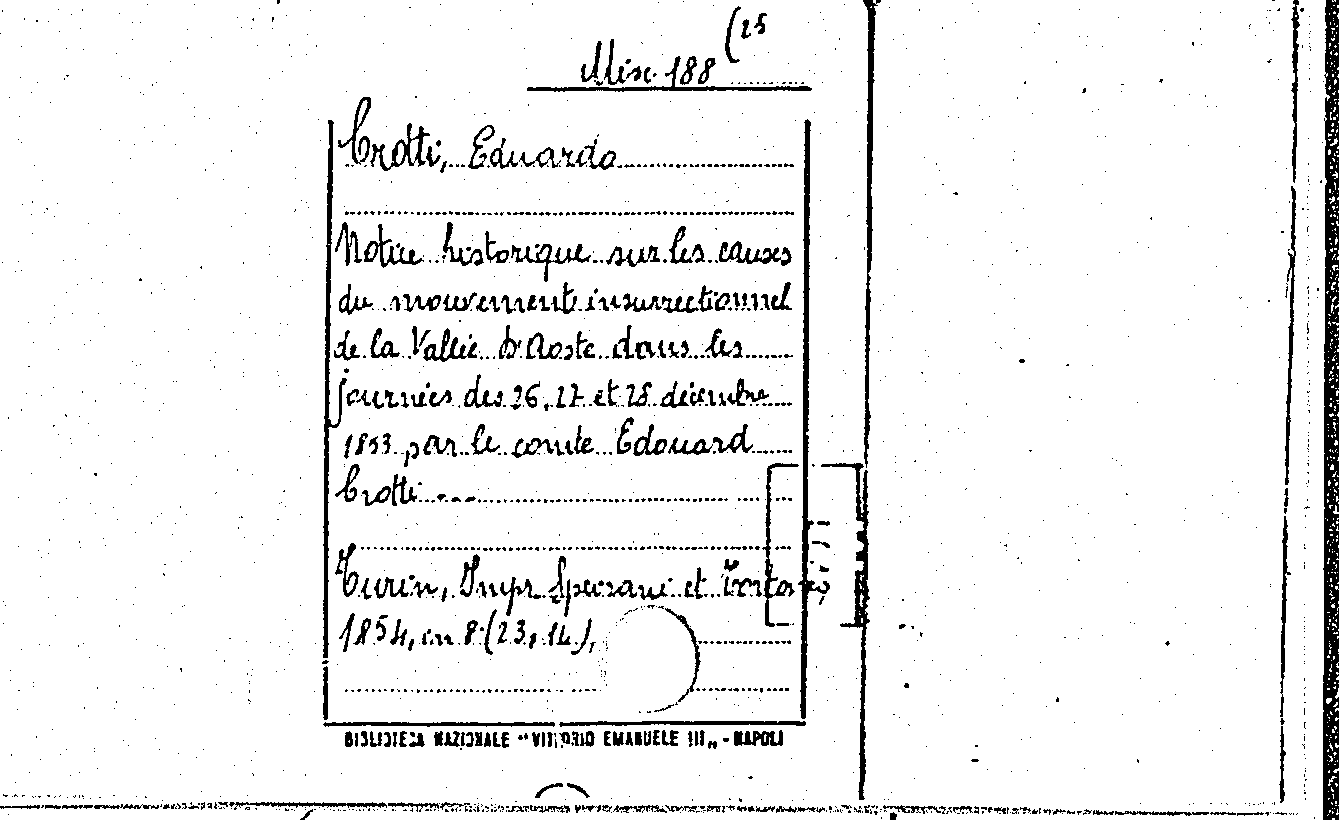 Misc. 188 (25
Crotti, Eduardo
Notice historique sur les causes
du mouvement insurrectionnel
de la Vallée d'Aoste dans les
journées des 26, 27 et 28 décembre
1853 par le comte Edouard
Crotti ...
Turin, Impr. Speirani et Torto
1854, in 8° (23, 14),
BIBLIOTECA NAZIONALE "VITTORIO EMANUELE III„ - NAPOLI